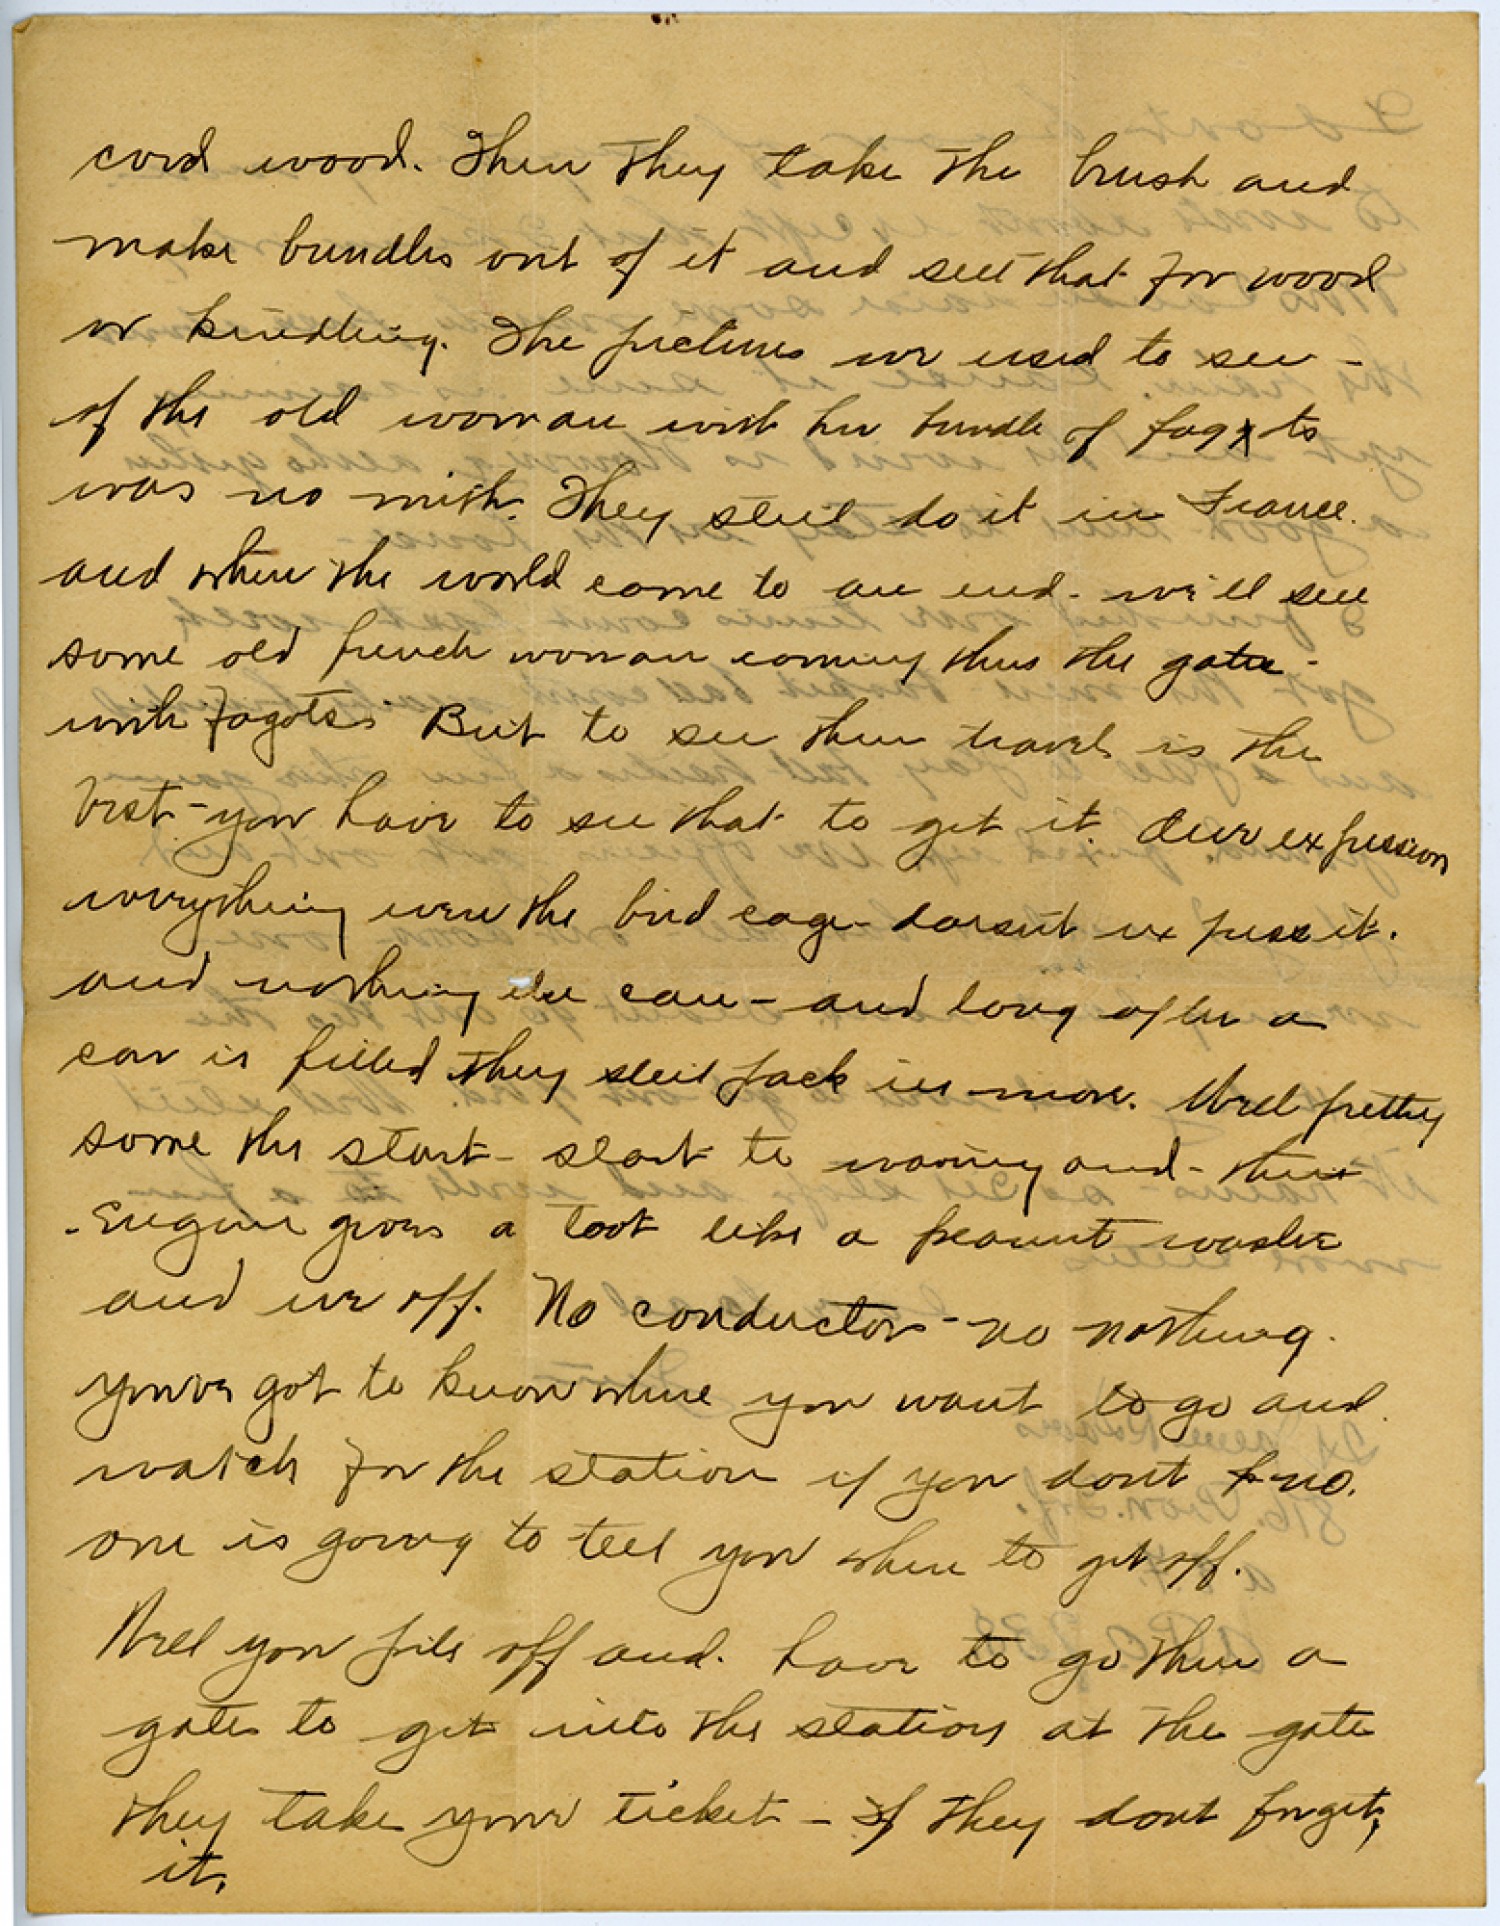 cord wood. Then they take the brush and
make bundles out of it and sell that for wood
or kindling. The pictures we used to see -
of the old woman with her bundle of fagots
was no mith. They still do it in France.
and when the world come to an end - we'll see
some old french woman coming thru the gate -
with fagots. But to see them travel is the
best - you have to see that to get it. Our expression
everything were the bird cage - doesn't express it.
and nothing else can - and long after a
car is filled they still pack in more. Well pretty
some the start - start to waving and - their
- Engine gives a toot like a peanut
and we off. No conductor - no nothing.
youve got to know where you want to go and
watch for the station if you dont no
one is going to tell you when to get off.
Well you pile off and. have to go thru a
gate to get into the station at the gate
they take your ticket - if they dont forget,
it.